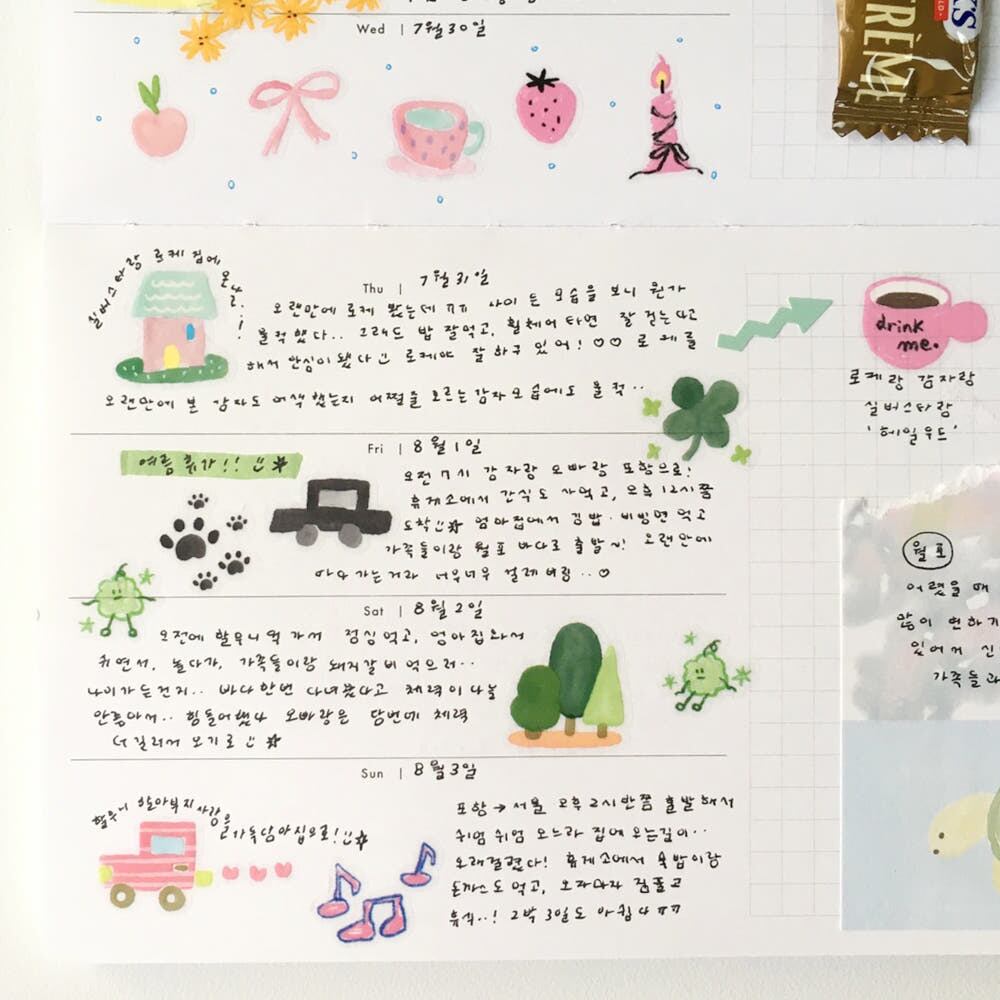 Wed | 7월30일
CRÈME
Thu | 7월 31일
실버스타랑 로케 집에 온 날..!
오랜만에 로케 봤는데 ㅠㅠ 사이 든 모습을 보니 뭔가
울컥했다.. 그래도 밥 잘먹고, 휠체어 타면 잘 걷는다고
해서 안심이 됐다 로케야 잘 하구 있어! ♡♡ 로케를
오랜만에 본 감자도 어색했는지 어쩔줄 모르는 감자모습에도 울컥..
drink
me.
로케랑 감자랑
실버스타랑
'헤일우드'
Fri | 8월 1일
여름 휴가!!
오전 7시 감자랑 오빠랑 포항으로!
휴게소에서 간식도 사먹고, 오후 12시쯤
도착 엄마집에서 김밥·비빔면 먹고
가족들이랑 월포 바다로 출발~! 오랜만에
바다가는거라 너무너무 설레버림..♡
월포
어렸을 때
많이 변하기
있어서 신
가족들과
Sat | 8월 2일
오전에 할무니댁 가서 점심먹고, 엄마집와서
쉬면서, 놀다가, 가족들이랑 돼지갈비 먹으러..
나이가 든건지.. 바다한번 다녀왔다고 체력이 나눌
안좋아서.. 힘들어했다 오빠랑은 담번에 체력
더 길러서 오기로
Sun | 8월 3일
할무니 할아부지 사랑을
가득담아 집으로!
포항 → 서울 오후 2시반쯤 출발해서
쉬엄쉬엄 오느라 집에 오는길이..
오래걸렸다! 휴게소에서 국밥이랑
돈까스도 먹고, 오자마자 짐풀고
휴식..! 2박 3일도 아쉽다 ㅠㅠ